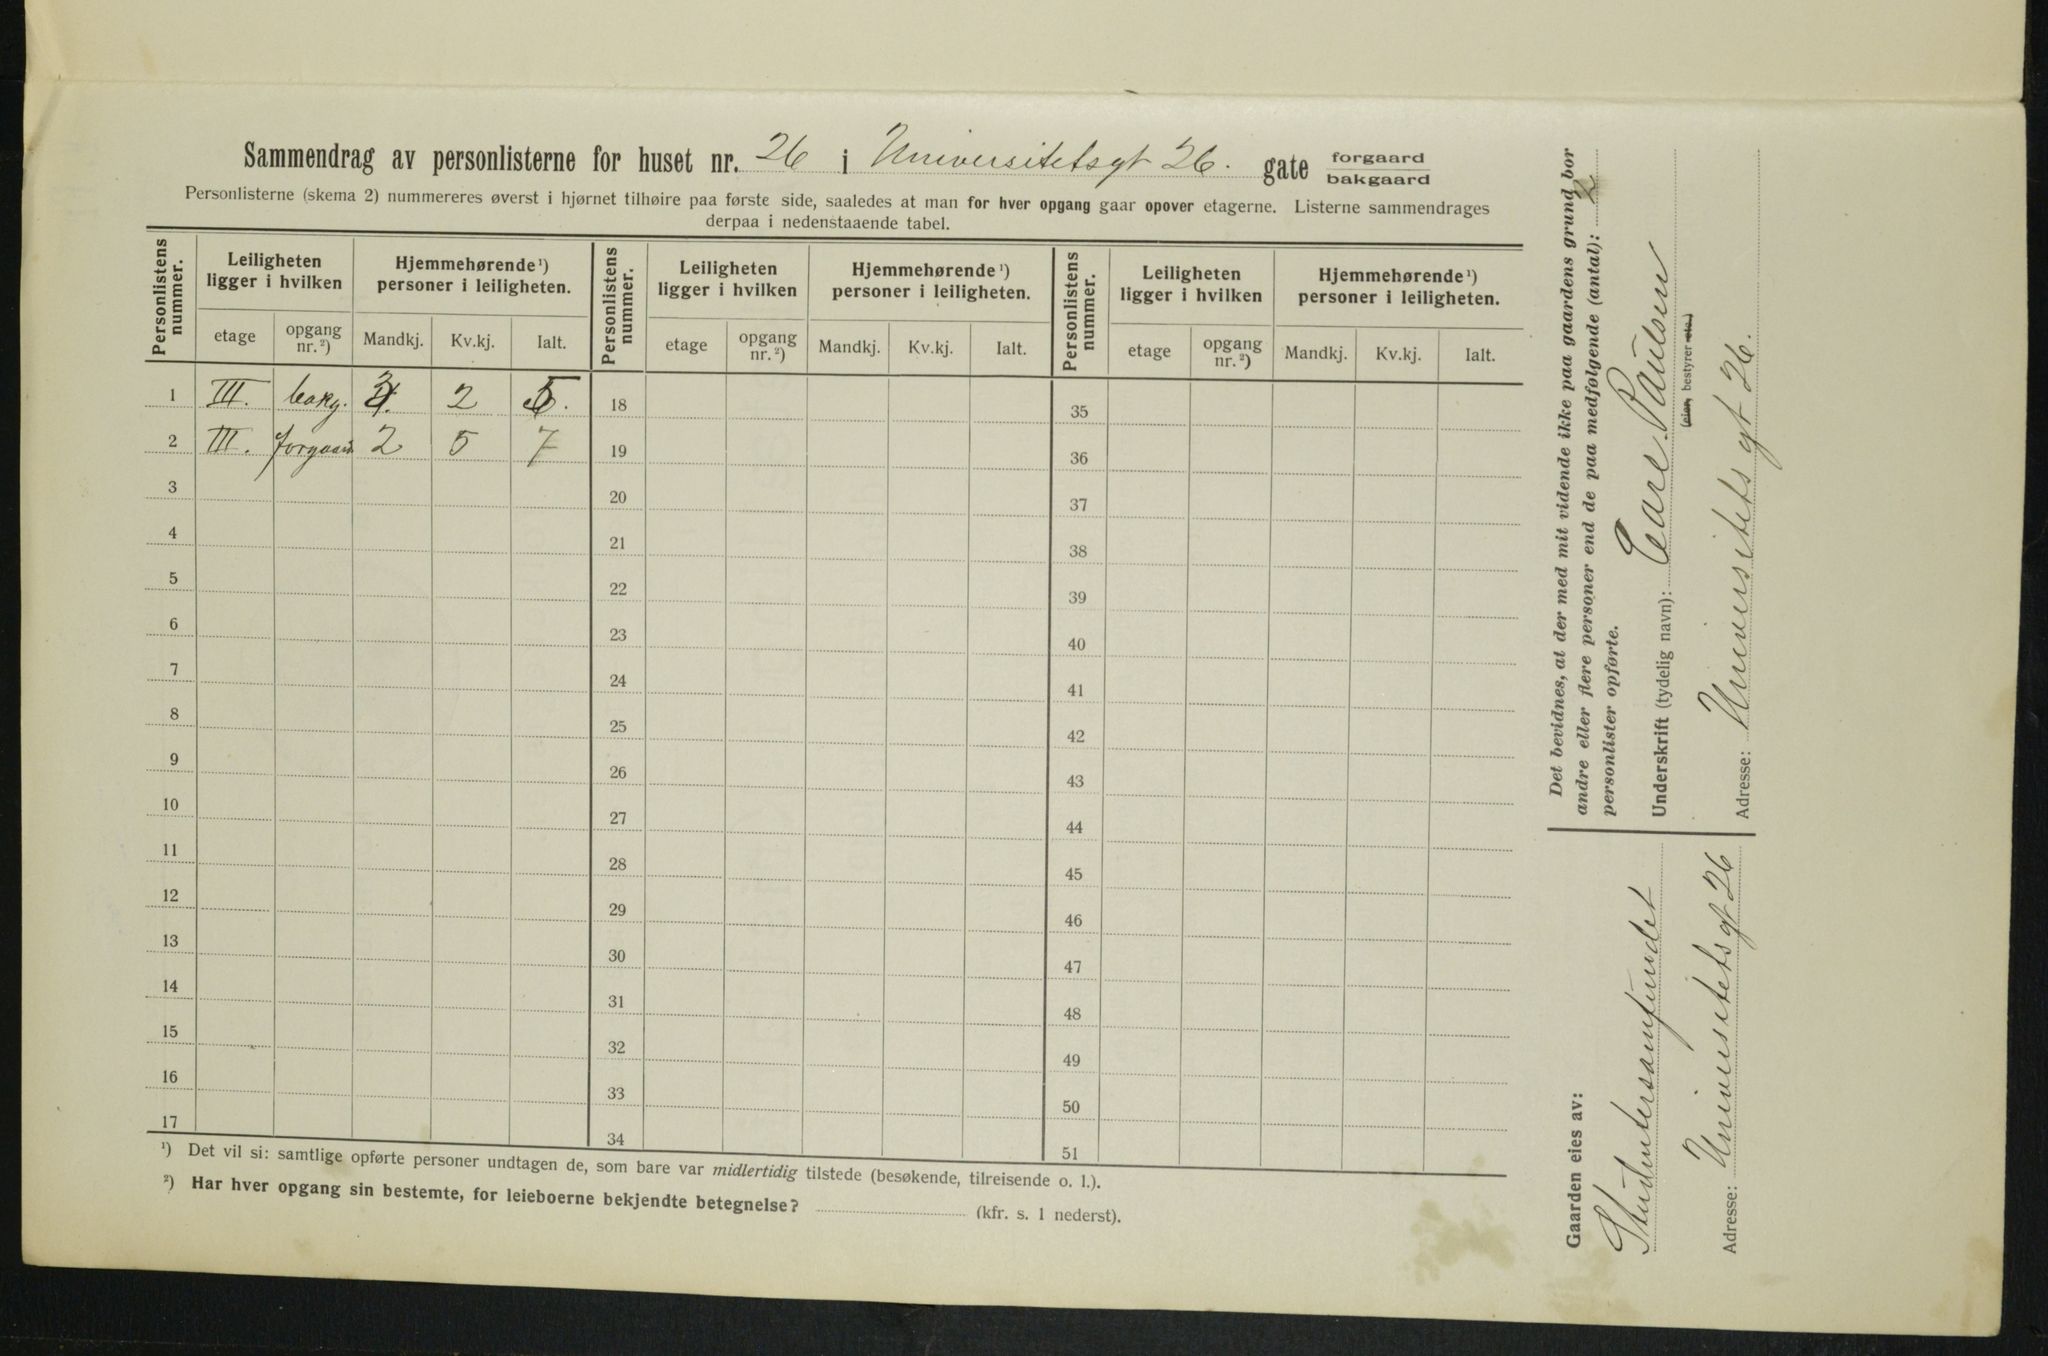 Sammendrag av personlisterne for huset nr. 26 i Universitetsgt 26. gate forgaard bakgaard
Personlisterne (skema 2) nummereres øverst i hjørnet tilhøire paa første side, saaledes at man for hver opgang gaar opover etagerne. Listerne sammendrages
derpaa i nedenstaaende tabel.
Personlistens nummer. Leiligheten ligger i hvilken Hjemmehørende¹) personer i leiligheten. Personlistens nummer. Leiligheten ligger i hvilken Hjemmehørende¹) personer i leiligheten. Personlistens nummer. Leiligheten ligger i hvilken Hjemmehørende¹) personer i leiligheten.
etage opgang nr.²) Mandkj. Kv.kj. Ialt. etage opgang nr.²) Mandkj. Kv.kj. Ialt. etage opgang nr.²) Mandkj. Kv.kj. Ialt.
1 III. bakg. 3. 2 5. 18 35
2 III. forgaard 2 5 7 19 36
3 20 37
4 21 38
5 22 39
6 23 40
7 24 41
8 25 42
9 26 43
10 27 44
11 28 45
12 29 46
13 30 47
14 31 48
15 32 49
16 33 50
17 34 51
¹) Det vil si: samtlige opførte personer undtagen de, som bare var midlertidig tilstede (besøkende, tilreisende o. l.).
²) Har hver opgang sin bestemte, for leieboerne bekjendte betegnelse? (kfr. s. 1 nederst).
Gaarden eies av:
Studentersamfundet
Adresse: Universitetsgt 26
Det bevidnes, at der med mit vidende ikke paa gaardens grund bor
andre eller flere personer end de paa medfølgende (antal): 2
personlister opførte.
Underskrift (tydelig navn): Carl Paulsen
(eier, bestyrer etc.)
Adresse: Universitets gt 26.